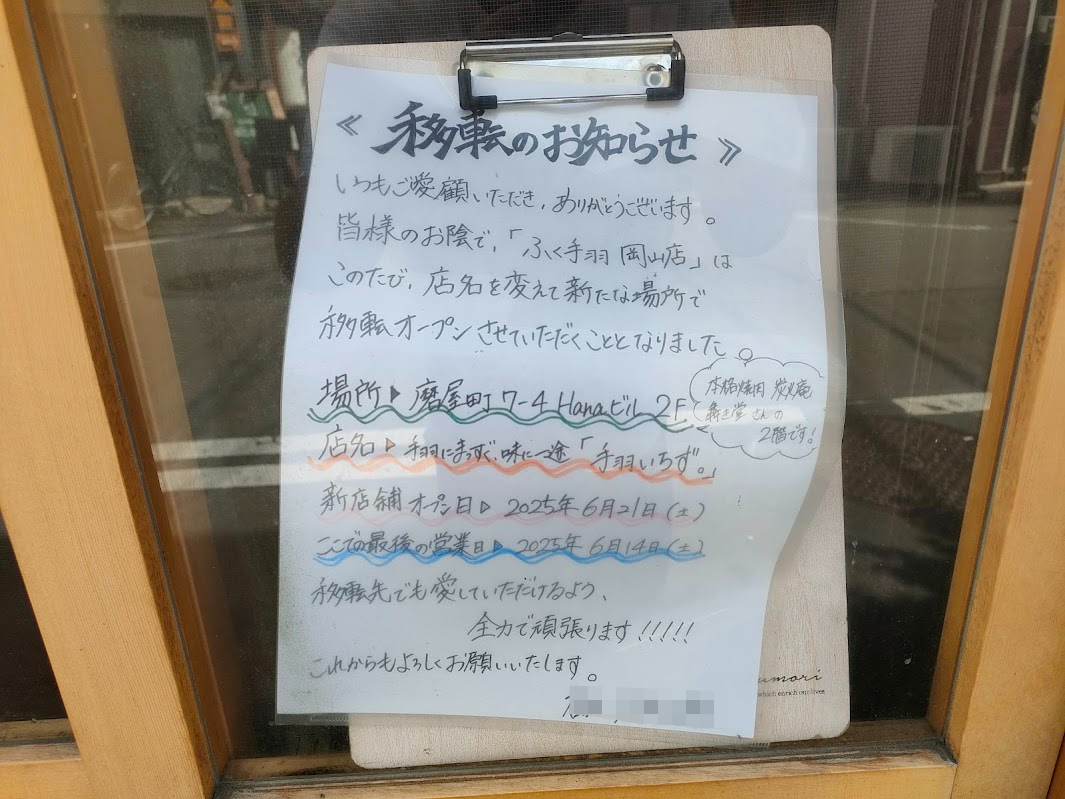 ≪ 移転のお知らせ ≫
いつもご愛顧いただき、ありがとうございます。
皆様のお陰で、「ふく手羽 岡山店」は
このたび、店名を変えて新たな場所で
移転オープンさせていただくこととなりました。
場所▶磨屋町7-4 Hanaビル 2F
本格焼肉 炭火庵
さんの
2階です!
店名▶手羽にまっすぐ、味に一途「手羽いちず。」
新店舗オープン日▷2025年6月21日(土)
ここでの最後の営業日▶2025年6月14日(土)
移転先でも愛していただけるよう、
全力で頑張ります!!!!!
これからもよろしくお願いいたします。
umori
which enrich our lives